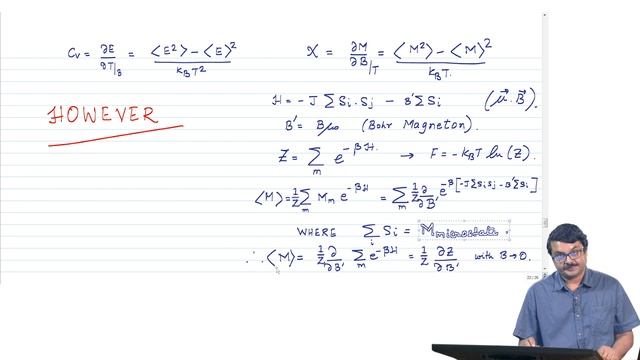 Cv = ∂E/∂T|B = (<E²> - <E>²)/(kBT²)    χ = ∂M/∂B|T = (<M²> - <M>²)/(kBT)
HOWEVER
H = -J Σ Si . Sj - B' Σ Si    (μ⃗ . B⃗).
B' = B μ₀ (Bohr Magneton).
Z = Σm e^(-βH) → F = -kBT ln(Z).
<M> = 1/Z Σm Mm e^(-βH) = Σm 1/Z ∂/∂B' e^(-β[-JΣSiSj - B'ΣSi])
WHERE Σi Si = Mmicrostate.
∴ <M> = 1/Z ∂/∂B' Σm e^(-βH) = 1/Z ∂Z/∂B' with B → 0.